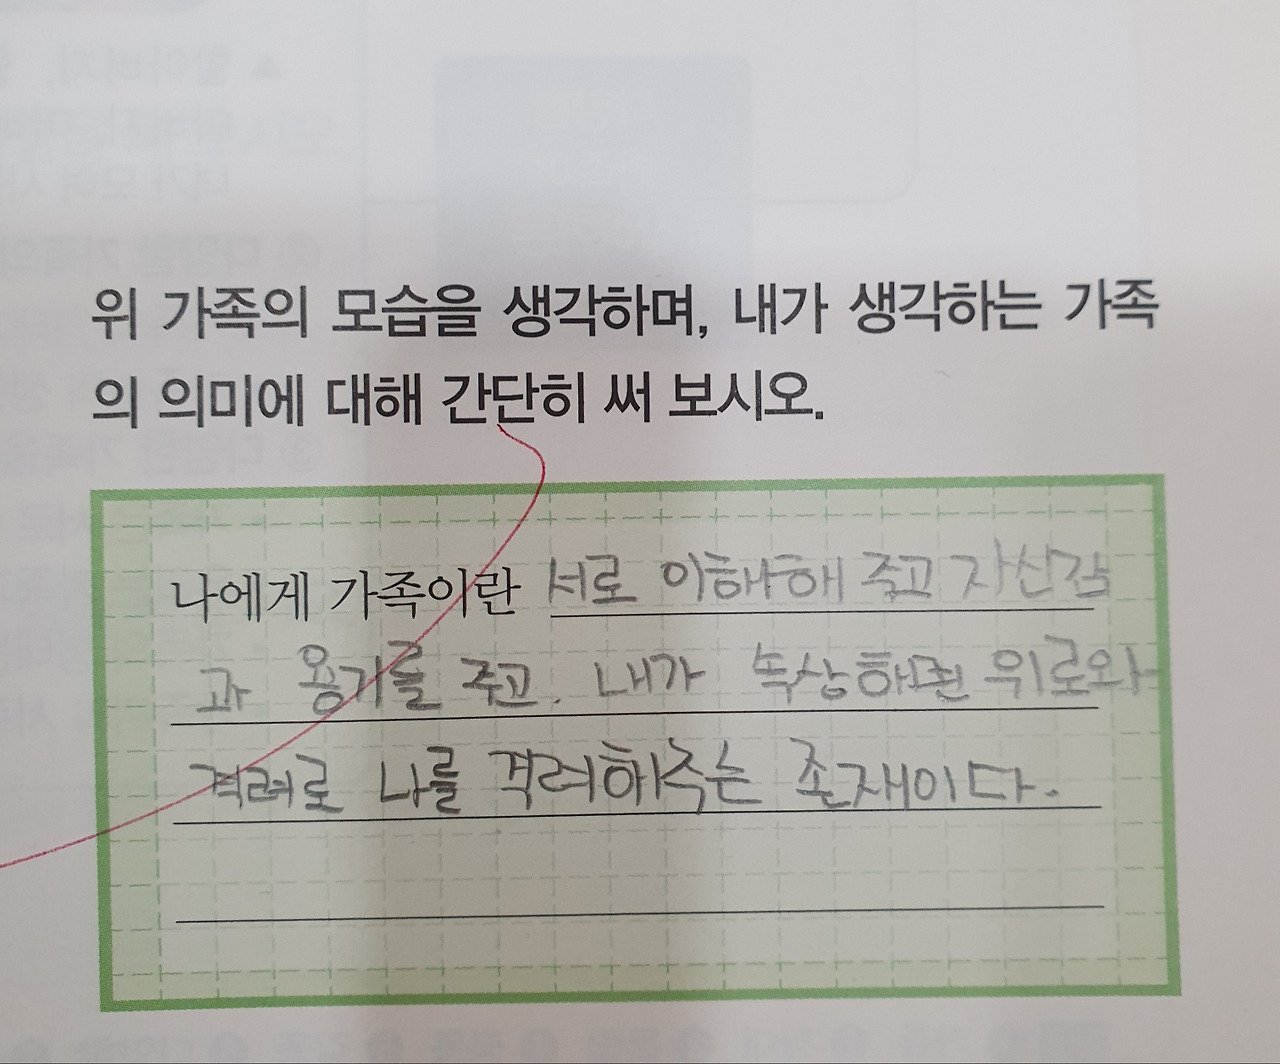 위 가족의 모습을 생각하며, 내가 생각하는 가족
의 의미에 대해 간단히 써 보시오.
나에게 가족이란 서로 이해해 주고 자신감
과 용기를 주고. 내가 속상하면 위로와
격려로 나를 격려해주는 존재이다.